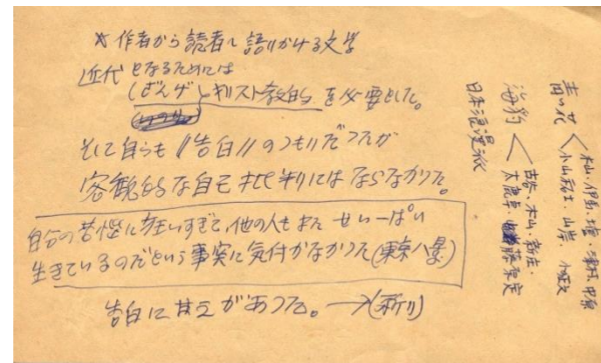 * 作者から読者へ語りかける文学
近代となるためには
(ざんげ) キリスト教的 を必要とした。
そして自らも〃告白〃のつもりだったが
客観的な自己批判にはならなかった。
自分の苦悩に狂いすぎて、他の人もまた せいいっぱい
生きているのだという事実に気付かなかった(東京八景)
告白に甘えがあった。→(新リ)
青い花 <
木山・伊馬・檀・津村・中原
小山祐士・山岸 小野
海豹 <
古谷・木山・新庄・
大鹿卓・藤原定
日本浪漫派